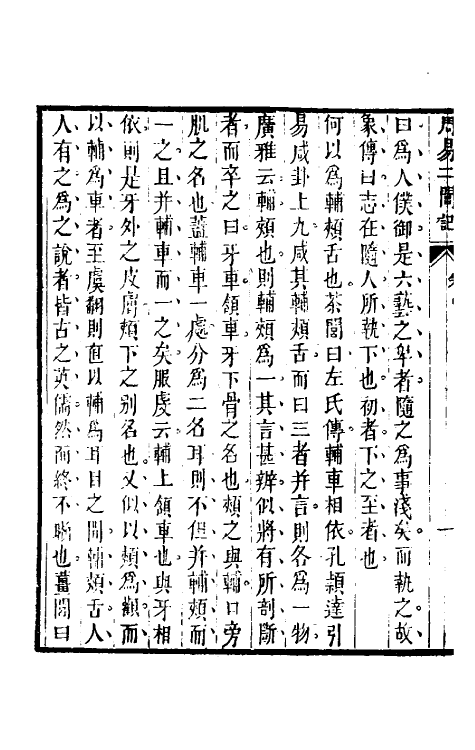 周易二閭記
曰爲人僕御是六藝之卑者隨之爲事淺矣而執之故
象傳曰志在隨人所執下也初者下之至者也
何以爲輔頰舌也茶誾曰左氏傳輔車相依孔頴達引
易咸卦上九咸其輔頰舌而曰三者并言則各爲一物
廣雅云輔頰也則輔頰爲一其言甚辨似將有所剖斷
者而卒之曰牙車頷車牙下骨之名也頰之與輔口旁
肌之名也蓋輔車一處分爲二名耳則不但并輔頰而
一之且并輔車而一之矣服虔云輔上頷車也與牙相
依則是牙外之皮膚頰下之别名也又似以頰爲顴而
以輔爲車者至虞翻則直以輔爲耳目之間輔頰舌人
人有之爲之說者皆古之英儒然而終不晰也薑誾曰
一